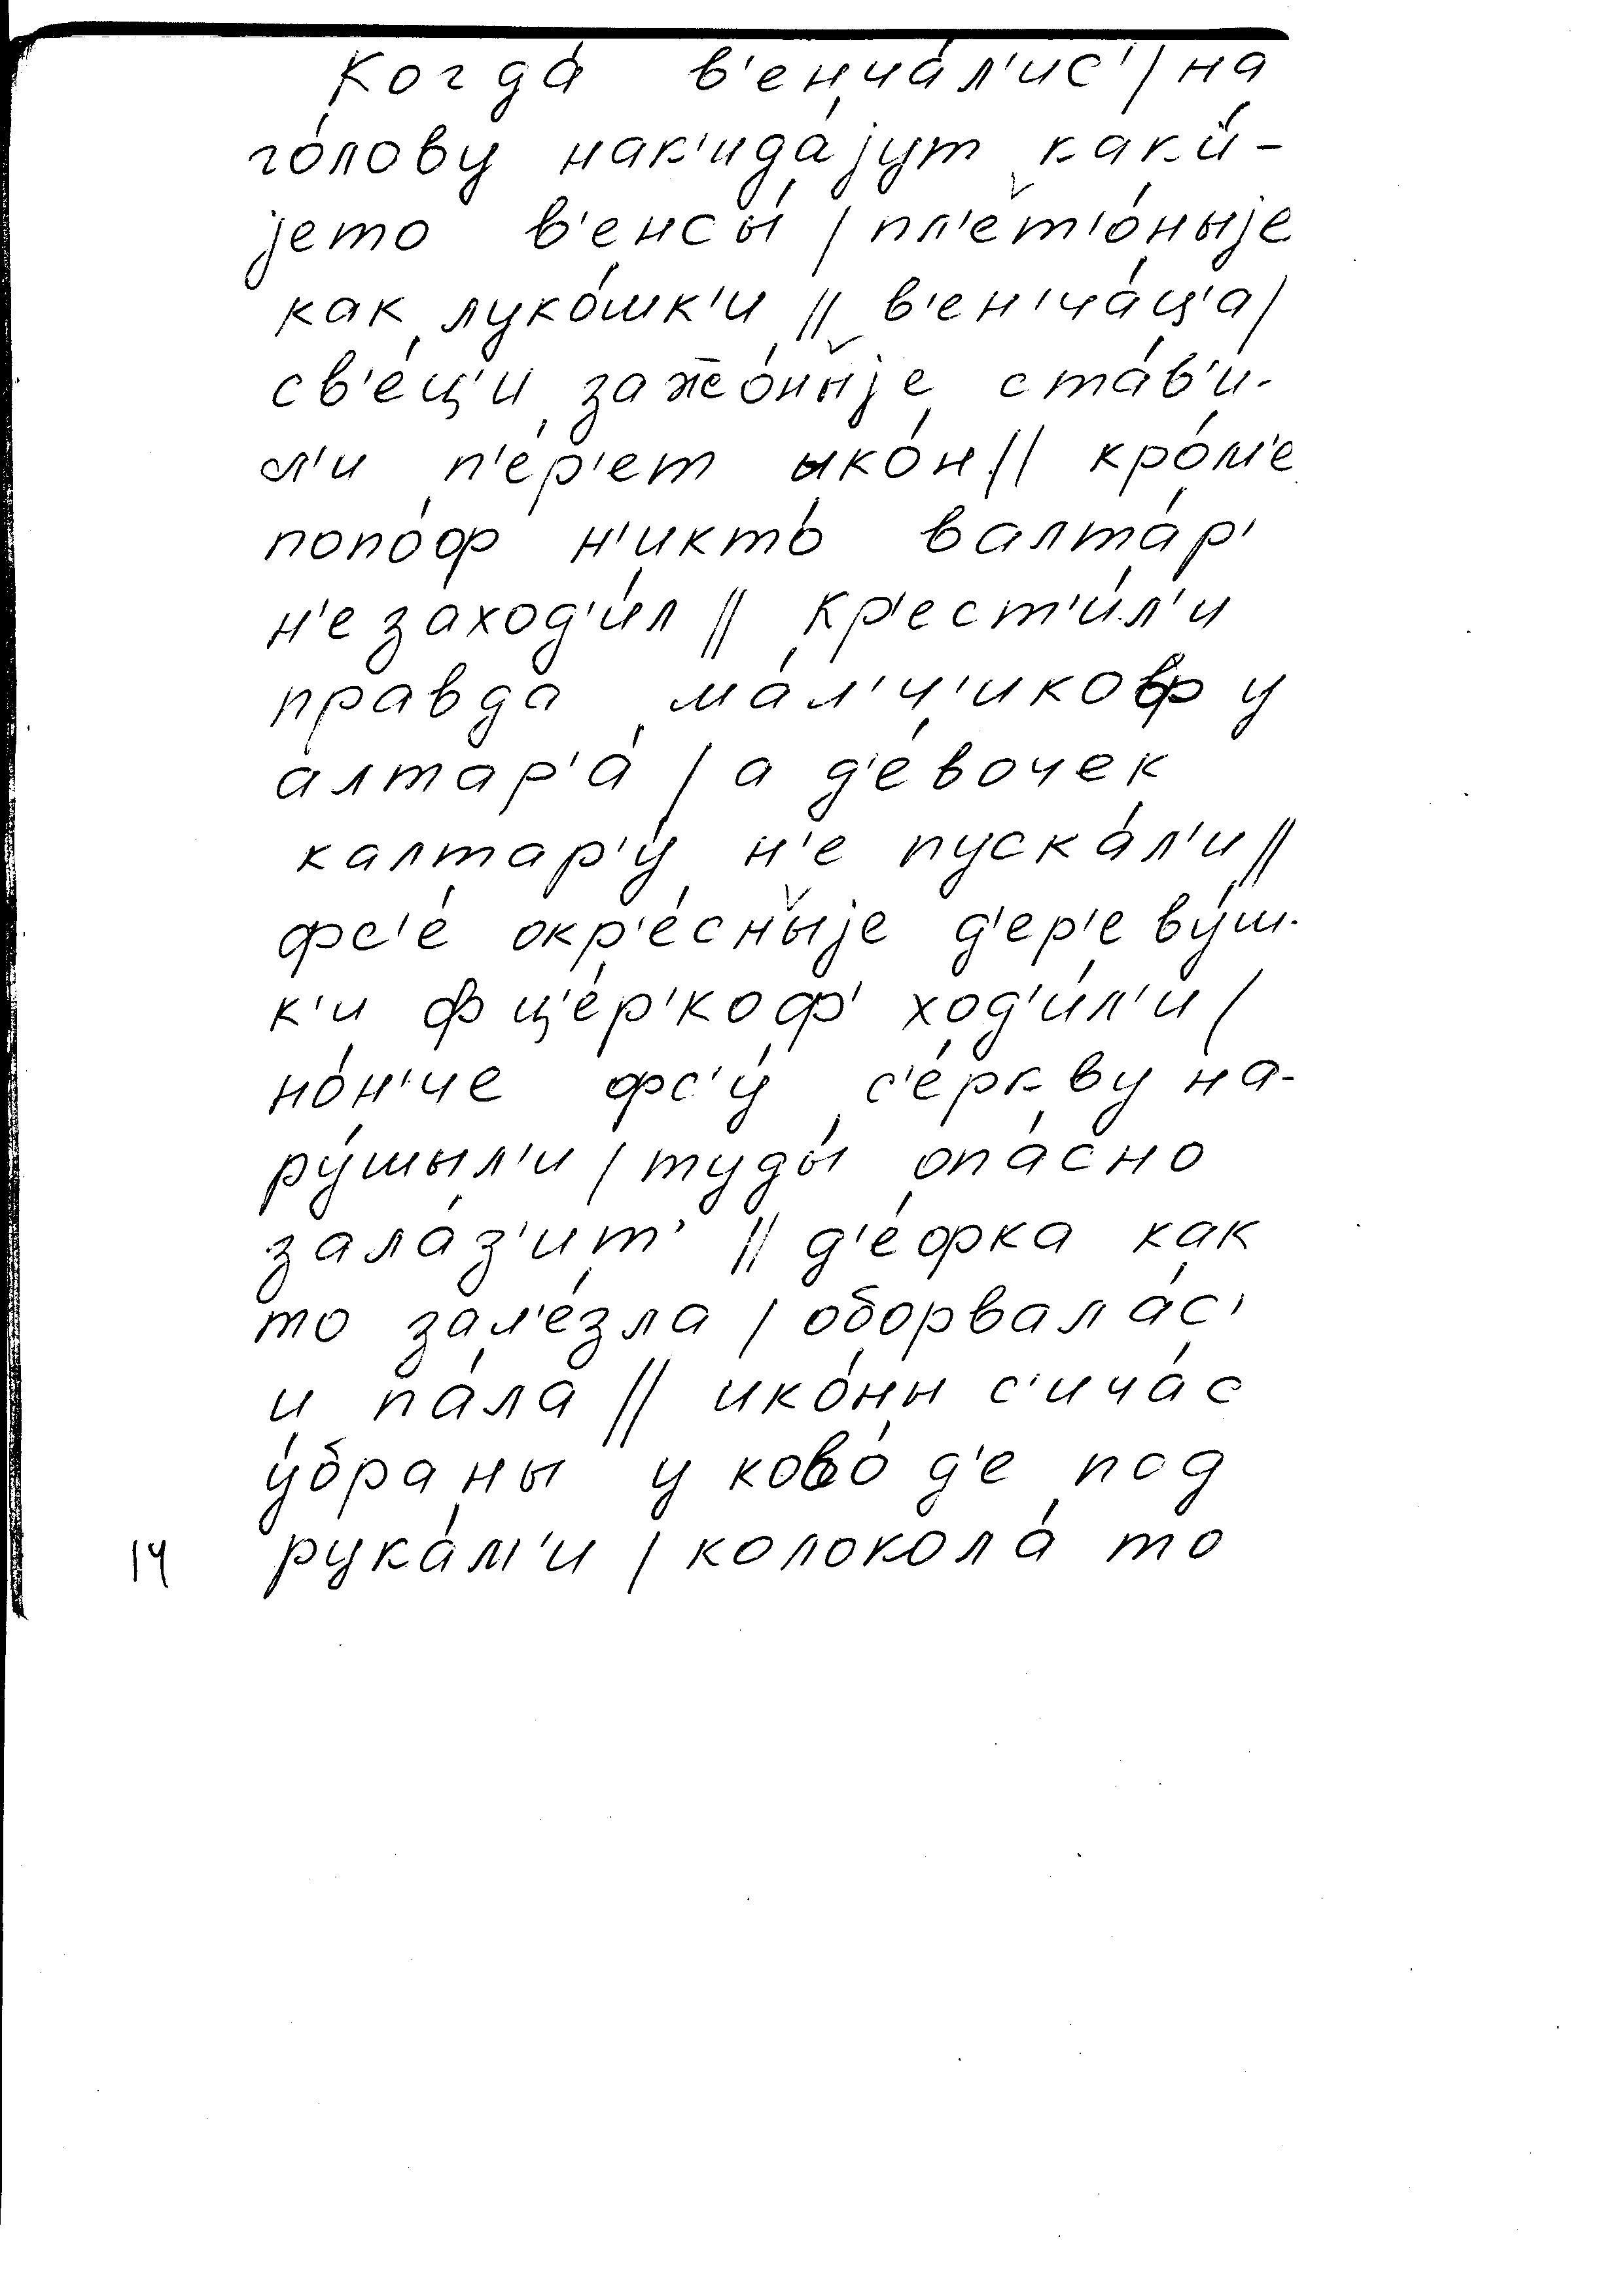 Когда́ в'енча́л'ис' / на
го́лову нак'ида́jут каки́-
jето в'енсы́ / пл'ет'о́ныjе
как луко́шк'и // в'ен'ча́ц'а /
св'е́ц'и зажо́ныjе ста́в'и-
л'и п'е́р'ет ыко́н // кро́м'е
попо́ф н'икто́ валта́р'
н'е заход'и́л // кр'ест'и́л'и
правда ма́л'ч'икоф у
алтар'а́ / а д'е́вочек
калтар'у́ н'е пуска́л'и //
фс'е́ окр'е́сныjе д'ер'еву́ш-
к'и ф ц'е́р'коф' ход'и́л'и /
но́н'че фс'у́ с'е́ркву на-
ру́шыл'и / туды́ опа́сно
зала́з'ит' // д'е́фка как
то зал'е́зла / оборвала́с'
и па́ла // ико́ны с'ича́с
у́браны у ково́ д'е под
14 рука́м'и / колокола́ то